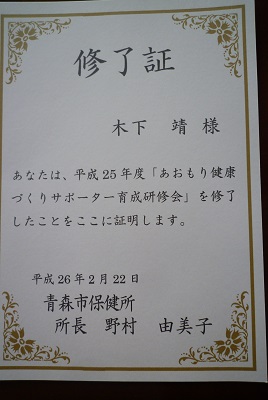 修了証
木下 靖 様
あなたは、平成25年度「あおもり健康
づくりサポーター育成研修会」を修了
したことをここに証明します。
平成26年2月22日
青森市保健所
所長 野村 由美子